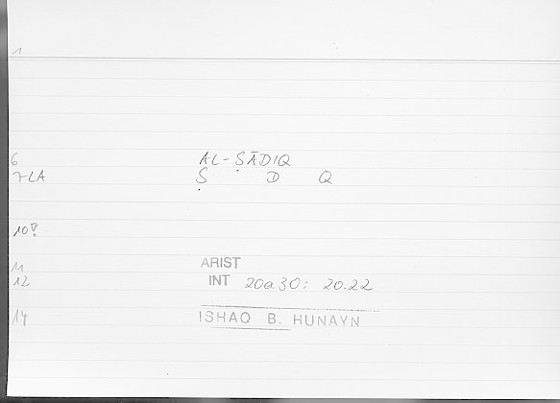 1
6 AL-ṢĀDIQ
7-LA Ṣ D Q
10
11 ARIST
12 INT 20a30: 20.22
14 ISHAQ B. HUNAYN